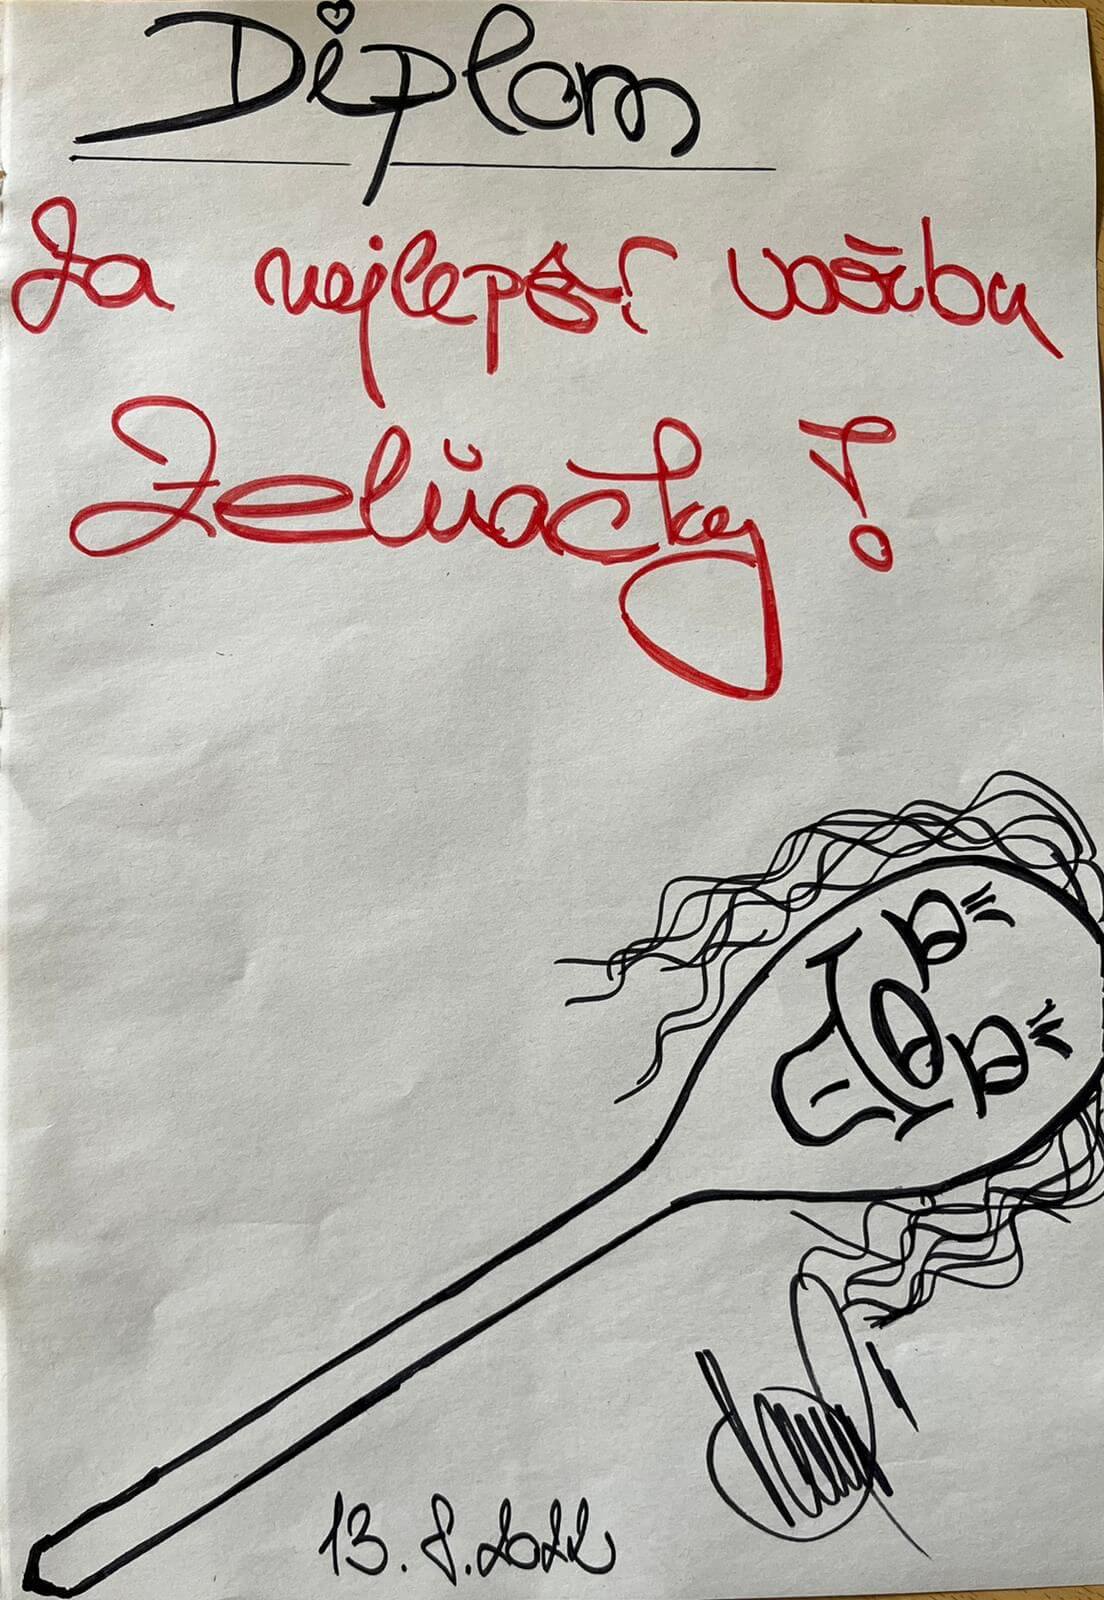 Diplom
Za nejlepší
Zelňačky!
13. 8. 2022